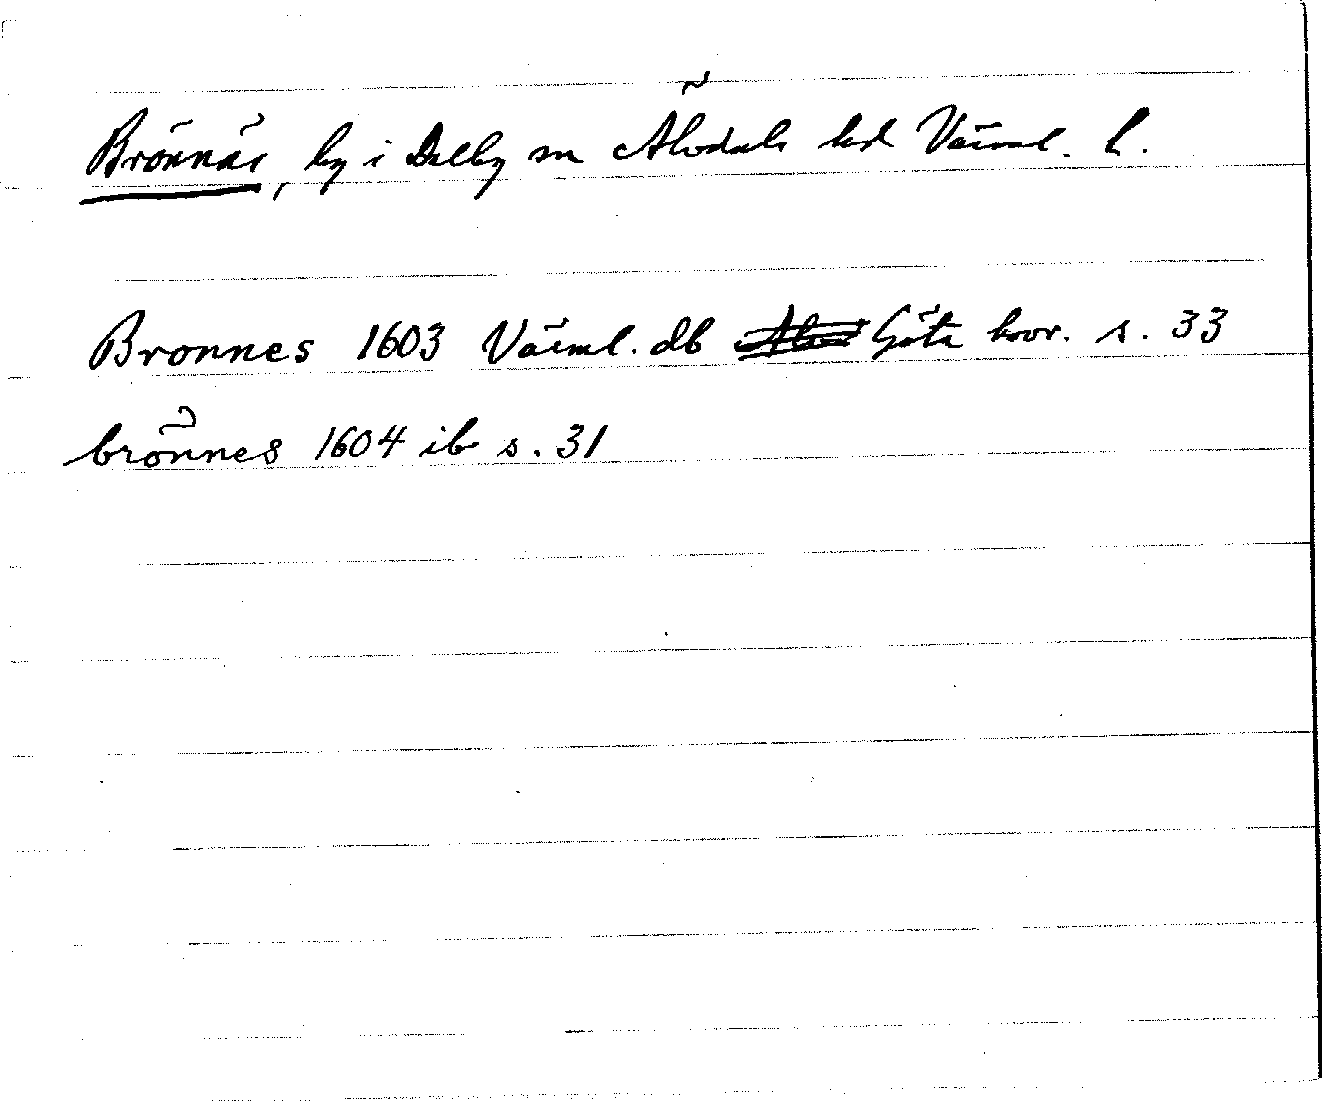 Brönnäs, by i Dalby sn Älvdals hd Värml. l.
Bronnes 1603 Värml. db Göta hovr. s. 33
brönnes 1604 ib s. 31